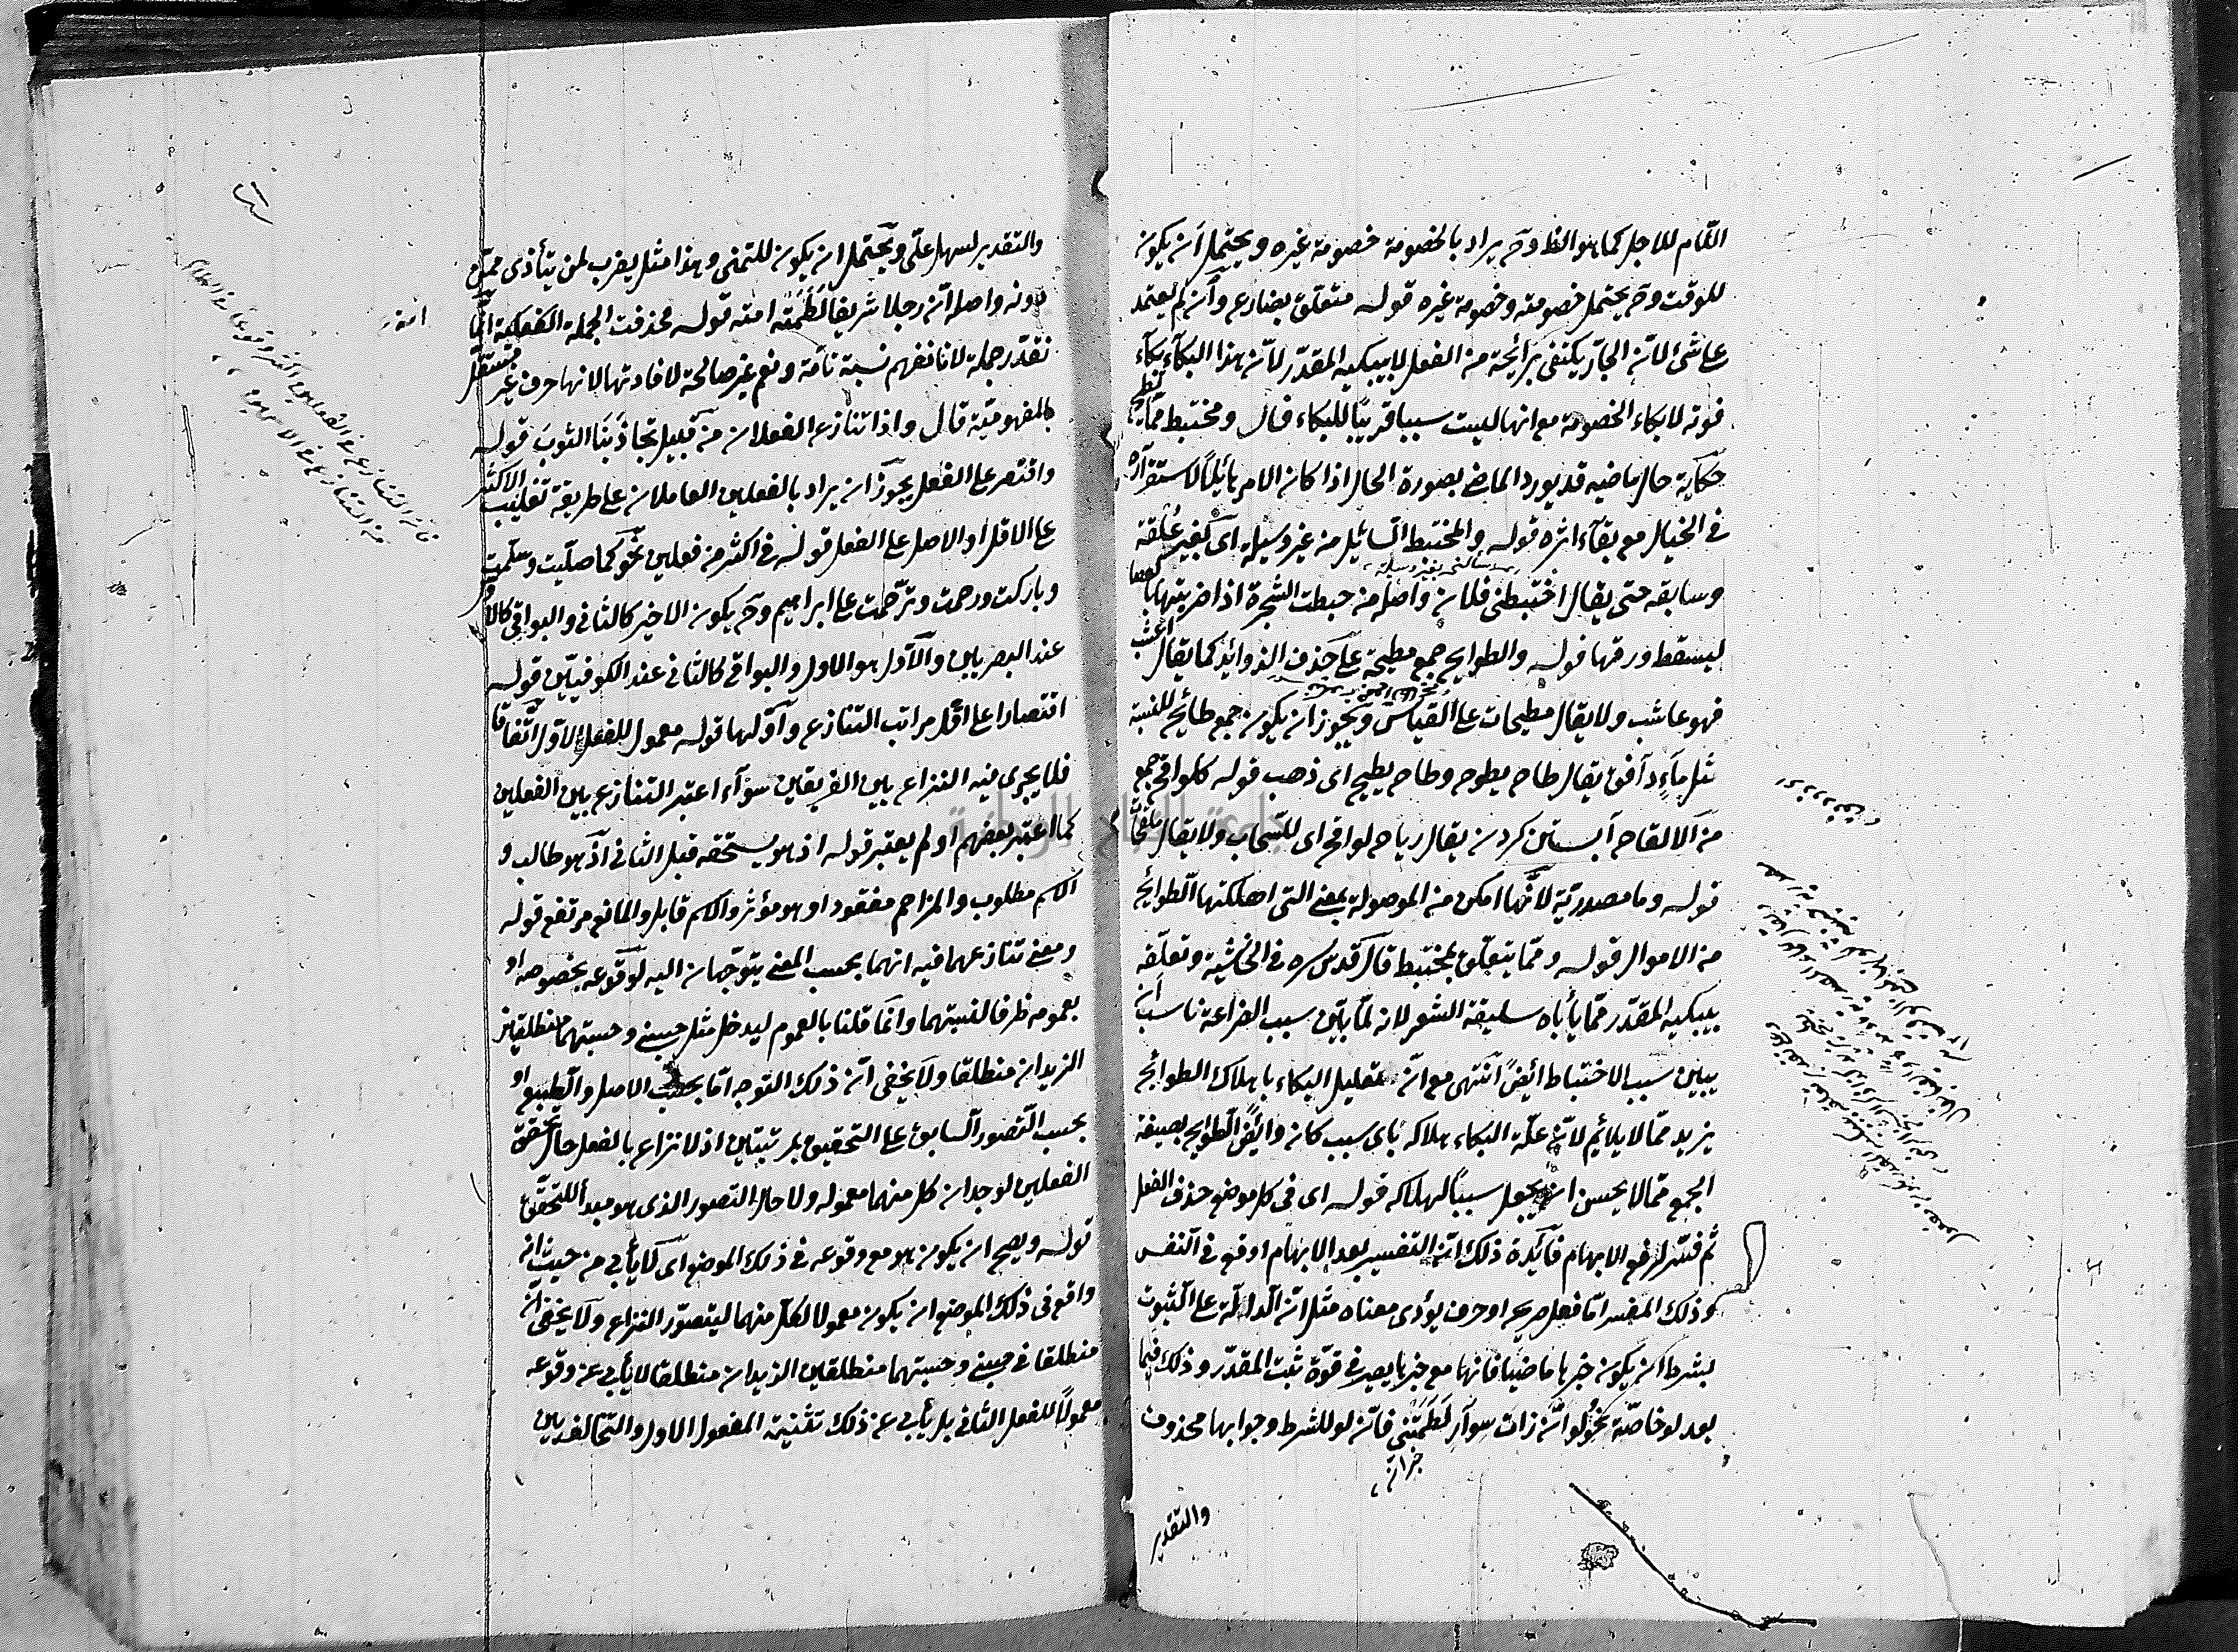 اللام للاجل كما هو الظ وح يراد بالخصومة خصومة غيره ويحتمل ان يكون
للوقت وح يحتمل خصومته وخصومة غيره قوله متعلق بضارع وان لم يعتمد
على شئ لان الجار يكتفى برائحة من الفعل لا بيبكيه المقدر لان هذا البكاء بكاء
فوته لا بكاء الخصومة مع انها ليست سببا قريبا للبكاء قال ومختبط مما تطيح
حكاية حال ماضيه قد يورد الماضى بصورة الحال اذا كان الامر هائلا لاستقراره
فى الخيال مع بقاء اثره قوله والمختبط السائل من غير وسيلة اى بغير علقة
وسابقه حتى يقال اختبطنى فلان واصله من خبطت الشجرة اذا ضربتها بالعصا
ليسقط ورقها قوله والطوايح جمع مطيحة على حذف الزوائد كما يقال اعشب
فهو عاشب ولا يقال مطيحات على القياس ويجوز ان يكون جمع طائح للنسبة
مثل ماء دافق يقال طاح يطوح وطاح يطيح اى ذهب قوله كلواقح جمع
من الالقاح آبستن كردن يقال رياح لواقح اى للسحاب ولا يقال ملقحات
قوله وما مصدرية لانها امكن من الموصولة بمعنى التى اهلكتها الطوائح
من الاموال قوله ومما يتعلق بمختبط قال قدس سره فى الحاشية وتعلقه
بيبكيه المقدر مما يأباه سليقة الشعر لانه لما بين سبب الضراعة ناسب ان
يبين سبب الاختباط ايضا انتهى مع ان تعليل البكاء باهلاك الطوائح
يزيد مما لا يلائم لان علة البكاء هلاكه باى سبب كان وايض الطوايح بصيغة
الجمع مما لا يحسن ان يجعل سببا لهلاكه قوله اى فى كل موضع حذف الفعل
ثم فسر لرفع الابهام فائدة ذلك ان التفسير بعد الابهام اوقع فى النفس
وذلك المفسر اما فعل صريح او حرف يؤدى معناه مثل ان الدالة على الثبوت
بشرط ان يكون خبرها ماضيا فانها مع خبرها يصير فى قوة ثبت المقدر وذلك فيما
بعد لو خاصة نحو لو ان ذات سوار لطمتنى فان لو للشرط وجوابها محذوف
والتقدير
والتقدير لسهل على ويحتمل ان يكون للتمنى وهذا مثل يضرب لمن يتأذى ممن
دونه واصله ان رجلا شريفا لطمته امته قوله فحذفت الجملة الفعلية انما
نقدر جملة لانا نفهم نسبة تامة ونعم غير صالحة لافادتها لانها حرف غير مستقل
بالمفهومية قال واذا تنازع الفعلان من قبيل تجاذبنا الثوب قوله
واقتصر على الفعل يجوز ان يراد بالفعلين العاملان على طريقة تغليب الاكثر
على الاقل او الاصل على الفعل قوله فى اكثر من فعلين نحو كما صليت وسلمت
وباركت ورحمت وترحمت على ابراهيم وح يكون الاخير كالثانى والبواقى كالاول
عند البصريين والاول هو الاول والبواقى كالثانى عند الكوفيين قوله
اقتصارا على اقل مراتب التنازع واولها قوله معمول للفعل الاول اتفاقا
فلا يجرى فيه النزاع بين الفريقين سواء اعتبر التنازع بين الفعلين
كما اعتبر بعضهم او لم يعتبر قوله اذ هو يستحقه قبل الثانى اذ هو طالب و
الاسم مطلوب والمزاحم مفقود او هو مؤثر والاسم قابل والمانع مرتفع قوله
ومعنى تنازعهما فيه انهما بحسب المعنى يتوجهان اليه لوقوعه بخصوصه او
بعمومه ظرفا لنسبتهما وانما قلنا بالعموم ليدخل مثل حسبنى وحسبتهما منطلقين
الزيدان منطلقا ولا يخفى ان ذلك التوجه اما بحسب الاصل والطبع او
بحسب التصور السابق على التحقيق بمرتبتين اذ لا نزاع بالفعل حال تحقق
الفعلين لوجدان كل منهما معموله ولا حال التصور الذى هو مبدأ للتحقق
قوله ويصح ان يكون هو مع وقوعه فى ذلك الموضع اى لا يأبى من حيث انه
واقع فى ذلك الموضع ان يكون معمولا لكل منهما ليتصور النزاع ولا يخفى ان
منطلقا فى حسبنى وحسبتهما منطلقين الزيدان منطلقا لا يأبى عن وقوعه
معمولا للفعل الثانى بل يأبى عن ذلك تثنية المفعول الاول والتخالف بين